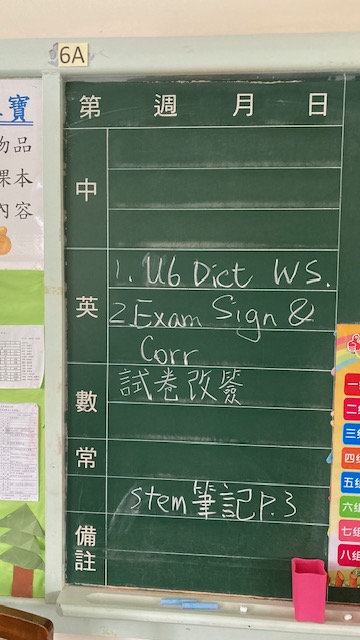 6A
寶
物品
課本
內容
第 週 月 日
中
英
1. U6 Dict WS.
2 Exam Sign &
Corr
數
試卷改簽
常
stem 筆記 P.3
備註
一
二組
三組
四組
五組
六組
七組
八組